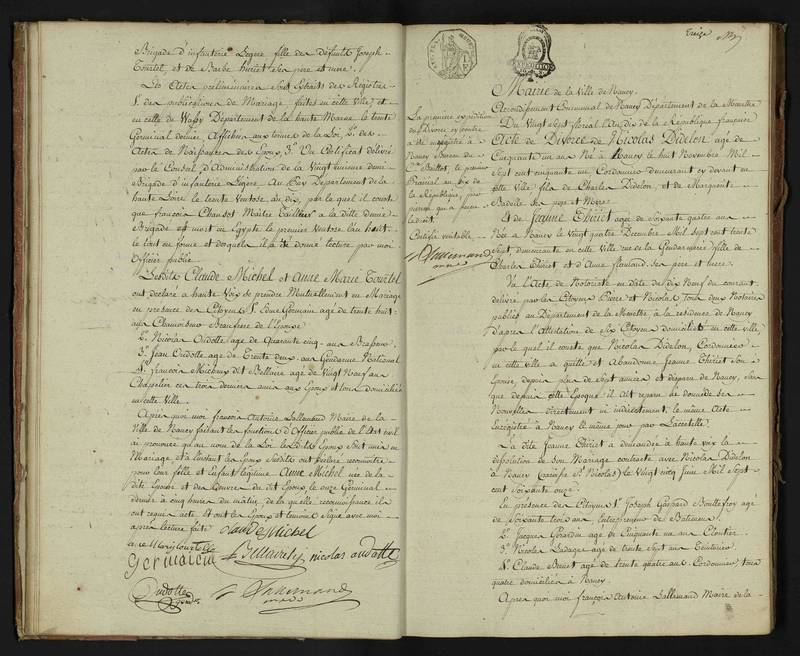 Brigade d'infanterie Legere fille des défunts Joseph
Tourtel, et de Barbe huriet ses pere et mere.
Les Actes préliminaires sont Extraits des Registres
1. des publications de Mariage faites en cette Ville, et
en celle de Wassy Département de la haute Marne le trente
Germinal dernier Affichés aux termes de la Loi, 2. des
Actes de Naissances des Epoux, 3. du Certificat délivré
par le Conseil d'Administration de la Vingt unieme demi
Brigade d'infanterie Légere. Au Puy Département de la
haute Loire le trente Ventose an dix, par le quel il conste
que françois Chansot Maître Tailleur a la ditte demie
Brigade est mort en Egypte le premier Ventose l'an huit
le tout en forme et desquels il a été donné lecture par moi
Officier public
Lesdits Claude Michel et Anne Marie Tourtel
ont déclaré a haute Voix se prendre Mutuellement en Mariage
en présence des Citoyens 1. Edme Germain age de trente huit
ans Beaufrere de l'Epouse
2. Nicolas Oudotte age de Quarante cinq ans Brasseur
3. Jean Oudotte age de Trente deux ans Gendarme National
4. françois Michau dit Bellaire agé de Vingt Neuf ans
Chapelier ces trois derniers amis aux Epoux et tous domiciliés
en cette Ville
Après quoi moi françois Antoine Lallemand Maire de la
Ville de Nancy faisant les fonctions d'Officier public de l'Etat civil
ai prononcé qu'au nom de la Loi lesdits Epoux sont unis en
Mariage et a l'instant les Epoux susdits ont déclaré reconnoitre
pour leur fille et Enfant légitime Anne Michel née de la
dite Epouse et des Œuvres du dit Epoux le onze Germinal
dernier a cinq heures du matin de la quelle reconnoissance ils
ont requis acte et ont les Epoux et temoins Signé avec moi
après lecture faite
claude Michel
anne Mary tourtelle
Germain
nicolas oudotte
Oudotte
Lallemand
maire
Treize
Mairie de la Ville de Nancy.
Arrondissement Communal de Nancy Département de la Meurthe
Du Vingt sept floréal l'An dix de la République française
Acte de Divorce de Nicolas Didelon agé de
Cinquante un ans Né a Nancy le huit Novembre Mil
Sept cent cinquante un Cordonnier demeurant cy devant en
cette Ville fils de Charles Didelon, et de Marguerite
Badelle ses pere et Mere.
Et de Jeanne Thiriet agée de Soixante quatre ans
Née a Nancy le Vingt quatre Decembre Mil sept cent trente
sept demeurante en cette Ville rue de la Gendarmerie fille de
Charles Thiriet et d'Anne flamand ses pere et mere.
Vu l'Acte de Notorieté en date du dix Neuf du courant
délivré par les Citoyens Pierre et Nicolas Notaires
publics au Département de la Meurthe a la résidence de Nancy
d'apres l'Attestation de Six Citoyens domiciliés en cette ville,
par le quel il conste que Nicolas Didelon, Cordonnier
en cette ville a quitté et Abandonné Jeanne Thiriet Son
Epouse, depuis plus de Sept années et disparu de Nancy, sans
que depuis cette Epoque il Ait reparu ni donné de ses
Nouvelles directement ni indirectement, le même Acte
Enregistré a Nancy le même jour par Lacretelle.
La dite Jeanne Thiriet a demandé a haute voix la
dissolution de son Mariage contracté avec Nicolas Didelon
a Nancy (paroisse St. Nicolas) le Vingt cinq Juin Mil Sept
cent Soixante onze.
En presence des Citoyens 1. Joseph Gaspard Boulfroy agé
de Soixante trois ans, Entrepreneur de Batimens.
2. Jacques Girardin age de Cinquante un ans Cloutier.
3. Nicolas Lasauge agé de trente Sept ans Teinturier
4. Claude Benet agé de trente quatre ans Cordonnier, tous
quatre domiciliés a Nancy.
Apres quoi moi françois Antoine Lallemand Maire de la
La premiere expédition
du divorce ci contre
a été enregistrée à
Nancy Bureau du
Cn. Baillot, le premier
Prairial an dix de
la République, par
qui a perçu
le droit.
Certifié véritable
Lallemand
maire